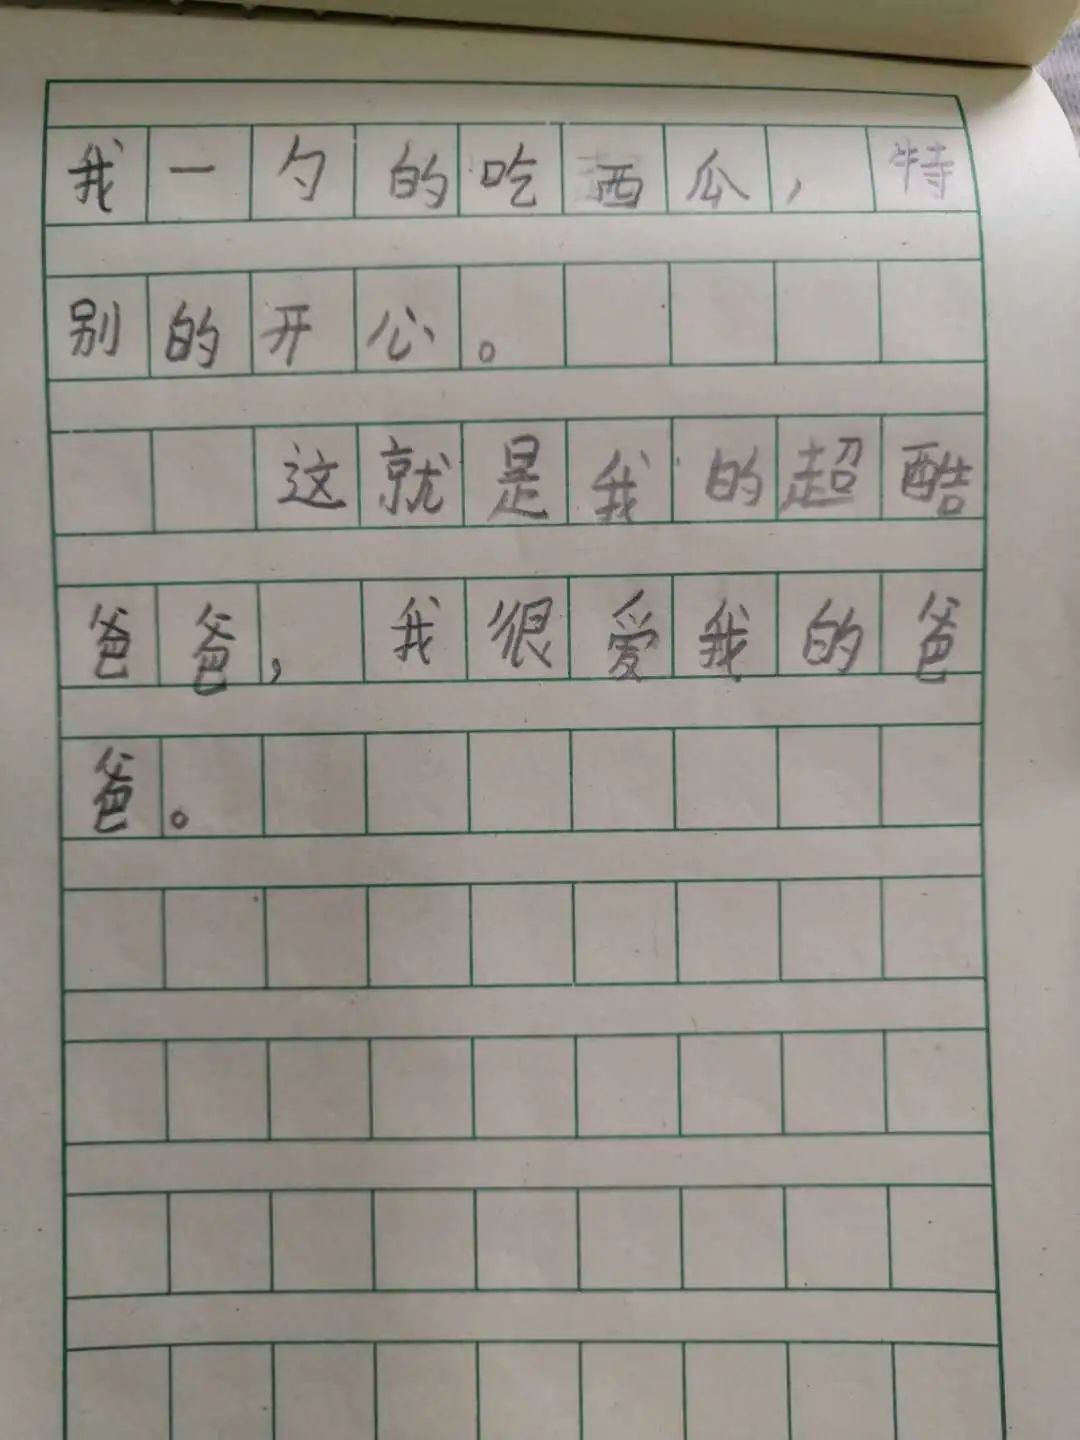 我一勺的吃西瓜，特
别的开心。
这就是我的超酷
爸爸，我很爱我的爸
爸。